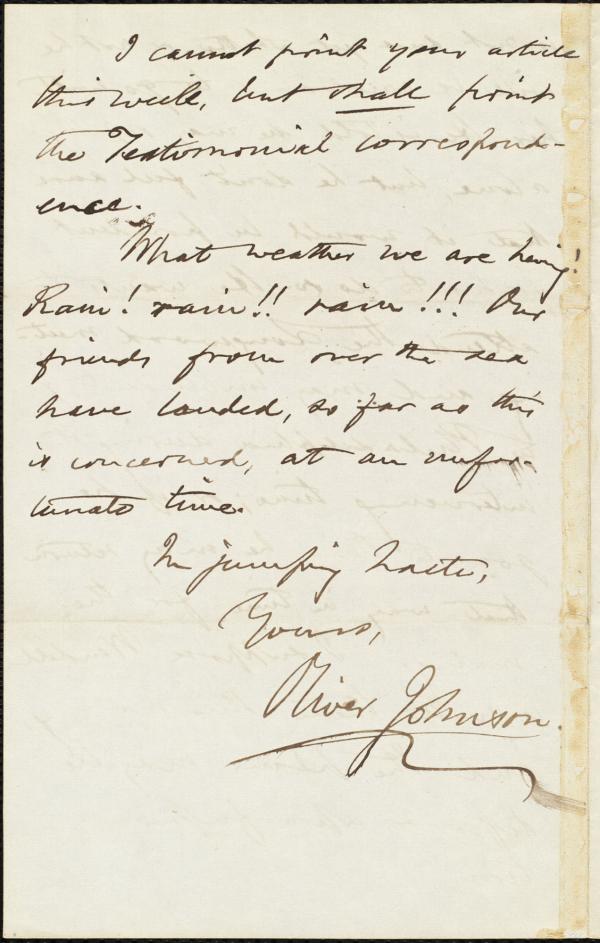 I cannot print your article
this week, but shall print
the Testimonial correspond-
ence.
What weather we are having!
Rain! rain!! rain!!! Our
friends from over the sea
have landed, so far as this
is concerned, at an unfor-
tunate time.
In jumping haste,
Yours,
Oliver Johnson.